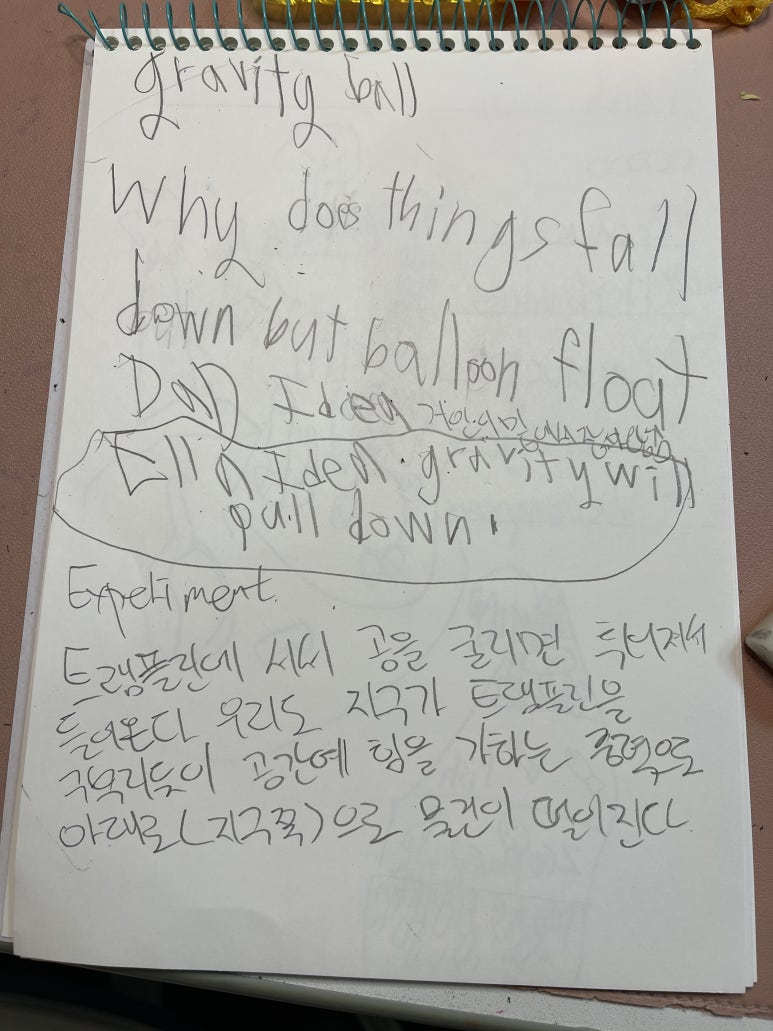 gravity ball
Why does things fall
down but balloon float
Dad Idea
Ella Idea. gravity will
pull down.
Experiment.
트램플린에 서서 공을 굴리면
들어온다 우리도 지구가 트램플린을
공간에 힘을 가하는 중력으로
아래로(지구쪽)으로 물건이 떨어진다